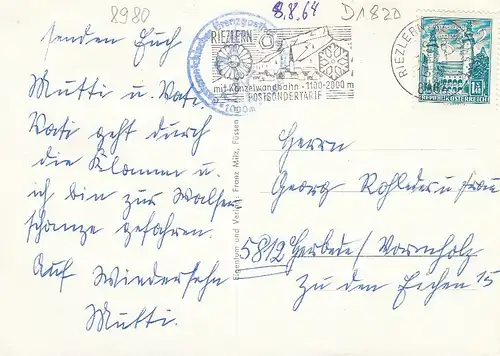 8980
8.8.64
D1820
senden Euch
Mutti u. Vati.
Vati geht durch
die Klamm u.
ich bin zur Walser
schanze gefahren.
Auf Wiedersehn
Mutti.
RIEZLERN
mit Kanzelwandbahn · 1100-2000 m
POSTSONDERTARIF
RIEZLERN
REPUBLIK ÖSTERREICH
Eigentum und Verlag: Franz Milz, Füssen
Herrn
Georg Rohleder u. Frau
5812 Herbede / Vormholz
zu den Eichen 15